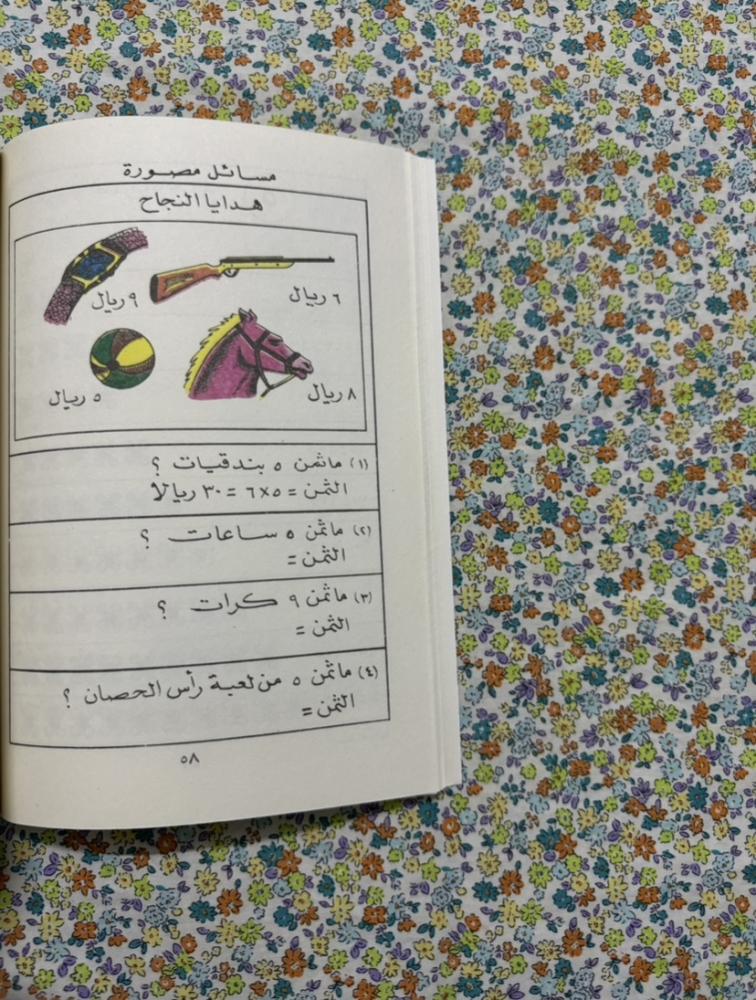 مسائل مصورة
هدايا النجاح
٦ ريال
٩ ريال
٨ ريال
٥ ريال
(١) ماثمن ٥ بندقيات ؟
الثمن = ٥×٦ = ٣٠ ريالا
(٢) ماثمن ٥ ساعات ؟
الثمن =
(٣) ماثمن ٩ كرات ؟
الثمن =
(٤) ماثمن ٥ من لعبة رأس الحصان ؟
الثمن =
٥٨